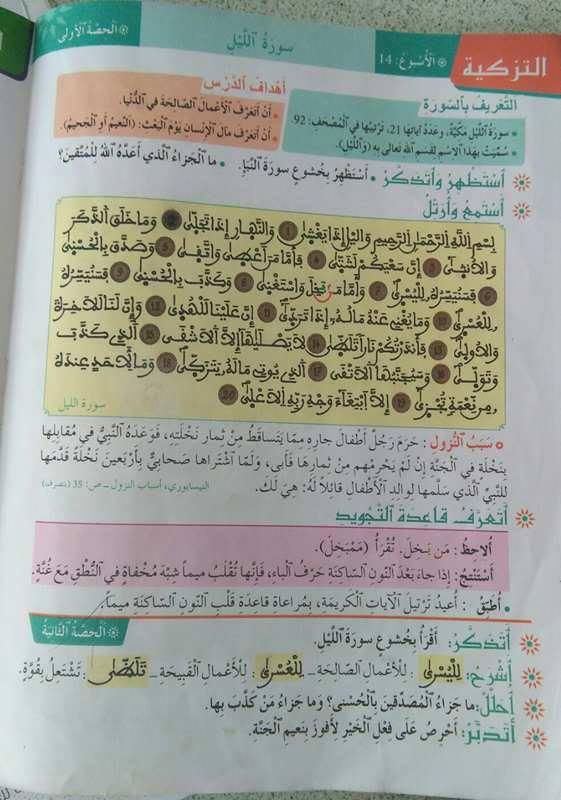 التزكية
الأُسْبوعُ: 14
سورَةُ اللَّيْلِ
الحصّة الأولى
التَّعْريفُ بِالسّورَةِ
• سورَةُ اللَّيْلِ مَكِّيَّةٌ، وَعَدَدُ آياتِها 21، تَرْتيبُها في المُصْحَفِ: 92.
• سُمِّيَتْ بِهَذا الاِسْمِ لِقَسَمِ اللهِ تَعالى بِهِ (وَاللَّيْلِ).
أَهْدافُ الدَّرْسِ
• أَنْ أَتَعَرَّفَ الأَعْمالَ الصّالِحَةَ في الدُّنْيا.
• أَنْ أَتَعَرَّفَ مَآلَ الإِنْسانِ يَوْمَ البَعْثِ: (النَّعيمُ أَوِ الجَحيمُ).
أَسْتَظْهِرُ وَأَتَذَكَّرُ • أَسْتَظْهِرُ بِخُشوعٍ سورَةَ النَّبَإِ. • ما الْجَزاءُ الَّذي أَعَدَّهُ اللهُ لِلْمُتَّقينَ؟
أَسْتَمِعُ وَأُرَتِّلُ
بِسْمِ اللَّهِ الرَّحْمَٰنِ الرَّحِيمِ وَاليْلِ إِذَا يَغْشَىٰ 1 وَالنَّهَارِ إِذَا تَجَلَّىٰ 2 وَمَا خَلَقَ الذَّكَرَ
وَالْأُنثَىٰ 3 إِنَّ سَعْيَكُمْ لَشَتَّىٰ 4 فَأَمَّا مَنْ أَعْطَىٰ وَاتَّقَىٰ 5 وَصَدَّقَ بِالْحُسْنَىٰ
6 فَسَنُيَسِّرُهُۥ لِلْيُسْرَىٰ 7 وَأَمَّا مَنۢ بَخِلَ وَاسْتَغْنَىٰ 8 وَكَذَّبَ بِالْحُسْنَىٰ 9 فَسَنُيَسِّرُهُۥ
لِلْعُسْرَىٰ 10 وَمَا يُغْنِي عَنْهُ مَالُهُۥ إِذَا تَرَدَّىٰ 11 إِنَّ عَلَيْنَا لَلْهُدَىٰ 12 وَإِنَّ لَنَا لَلَاخِرَةَ
وَالْأُولَىٰ 13 فَأَنذَرْتُكُمْ نَارًا تَلَظَّىٰ 14 لَا يَصْلَىٰهَا إِلَّا الْأَشْقَى 15 الَّذِي كَذَّبَ
وَتَوَلَّىٰ 16 وَسَيُجَنَّبُهَا الْأَتْقَى 17 الَّذِي يُوتِي مَالَهُۥ يَتَزَكَّىٰ 18 وَمَا لِأَحَدٍ عِندَهُۥ
مِن نِّعْمَةٍ تُجْزَىٰ 19 إِلَّا ابْتِغَاءَ وَجْهِ رَبِّهِ الْأَعْلَىٰ 20
سورة الليل
سَبَبُ النُّزولِ: حَرَمَ رَجُلٌ أَطْفالَ جارِهِ مِمّا يَتَساقَطُ مِنْ ثِمارِ نَخْلَتِهِ، فَوَعَدَهُ النَّبِيُّ في مُقابِلِها
بِنَخْلَةٍ في الْجَنَّةِ إِنْ لَمْ يَحْرِمْهُم مِنْ ثِمارِها فَأَبى، وَلَمّا اشْتَراها صَحابِيٌّ بِأَرْبَعينَ نَخْلَةً قَدَّمَها
لِلنَّبِيِّ الَّذي سَلَّمَها لِوالِدِ الْأَطْفالِ قائِلًا لَهُ: هِيَ لَكَ. النيسابوري، أسباب النزول ـ ص: 35 (بتصرف)
أَتَعَرَّفُ قاعِدَةَ التَّجْويدِ
أُلاحِظُ: مَن بَخِلَ. تُقْرَأُ (مَمْبَخِلَ).
أَسْتَنْتِجُ: إِذا جاءَ بَعْدَ النّونِ السّاكِنَةِ حَرْفُ الْباءِ، فَإِنَّها تُقْلَبُ ميماً شِبْهَ مُخْفاةٍ في النُّطْقِ مَعَ غُنَّةٍ.
• أُطَبِّقُ: أُعيدُ تَرْتيلَ الْآياتِ الْكَريمَةِ، بِمُراعاةِ قاعِدَةِ قَلْبِ النّونِ السّاكِنَةِ ميماً.
الحصّة الثّانية
أَتَذَكَّرُ: أَقْرَأُ بِخُشوعٍ سورَةَ اللَّيْلِ.
أَشْرَحُ: لِلْيُسْرَىٰ: لِلْأَعْمالِ الصّالِحَةِ ـ لِلْعُسْرَىٰ: لِلْأَعْمالِ الْقَبيحَةِ ـ تَلَظَّىٰ: تَشْتَعِلُ بِقُوَّةٍ.
أُحَلِّلُ: ما جَزاءُ الْمُصَدِّقينَ بِالْحُسْنى؟ وَما جَزاءُ مَنْ كَذَّبَ بِها.
أَتَدَبَّرُ: أَحْرِصُ عَلى فِعْلِ الْخَيْرِ لِأَفوزَ بِنَعيمِ الْجَنَّةِ.